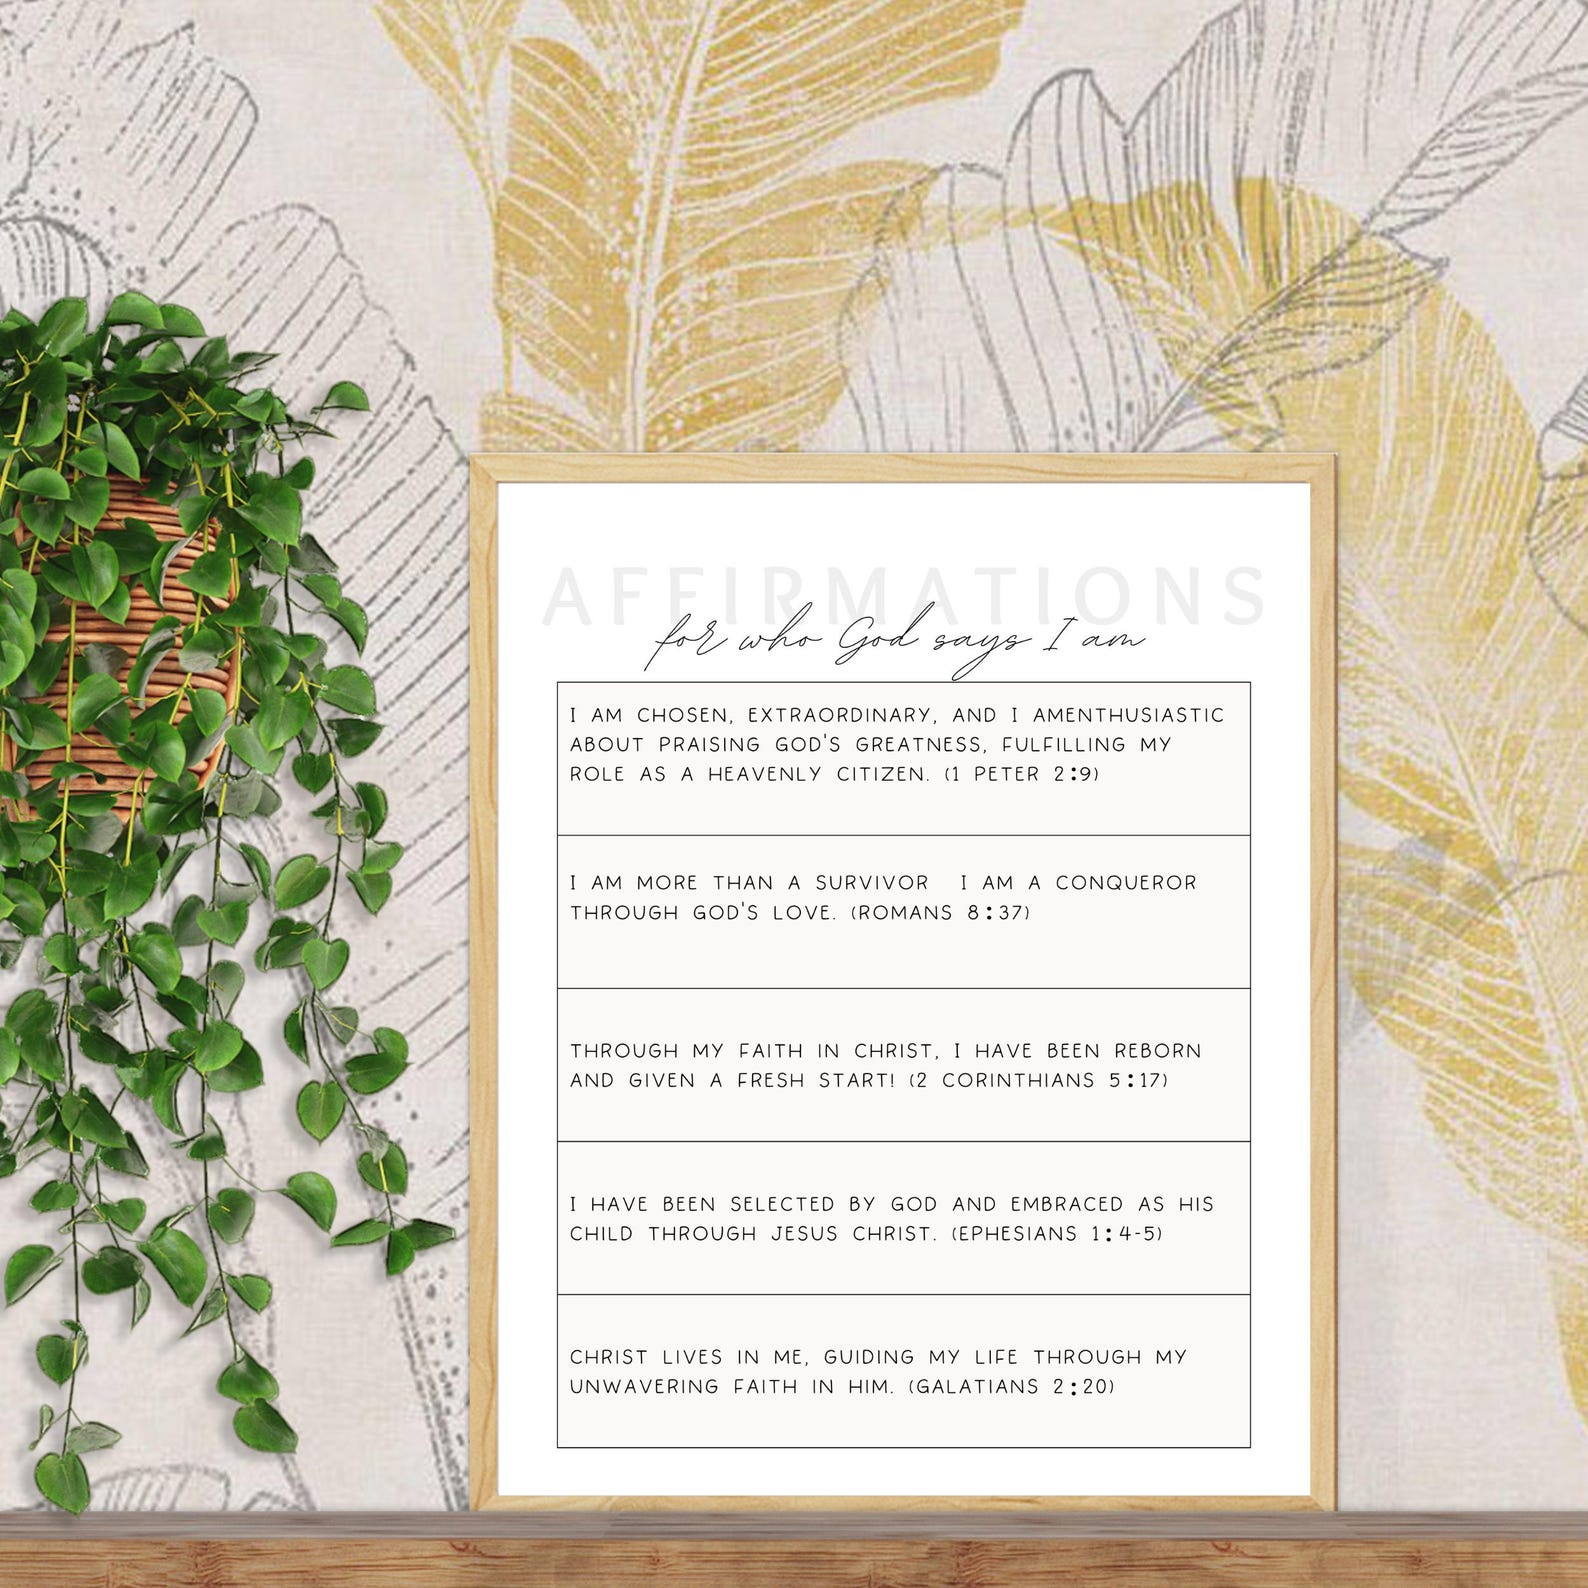 AFFIRMATIONS
for who God says I am
I AM CHOSEN, EXTRAORDINARY, AND I AMENTHUSIASTIC
ABOUT PRAISING GOD'S GREATNESS, FULFILLING MY
ROLE AS A HEAVENLY CITIZEN. (1 PETER 2:9)
I AM MORE THAN A SURVIVOR I AM A CONQUEROR
THROUGH GOD'S LOVE. (ROMANS 8:37)
THROUGH MY FAITH IN CHRIST, I HAVE BEEN REBORN
AND GIVEN A FRESH START! (2 CORINTHIANS 5:17)
I HAVE BEEN SELECTED BY GOD AND EMBRACED AS HIS
CHILD THROUGH JESUS CHRIST. (EPHESIANS 1:4-5)
CHRIST LIVES IN ME, GUIDING MY LIFE THROUGH MY
UNWAVERING FAITH IN HIM. (GALATIANS 2:20)